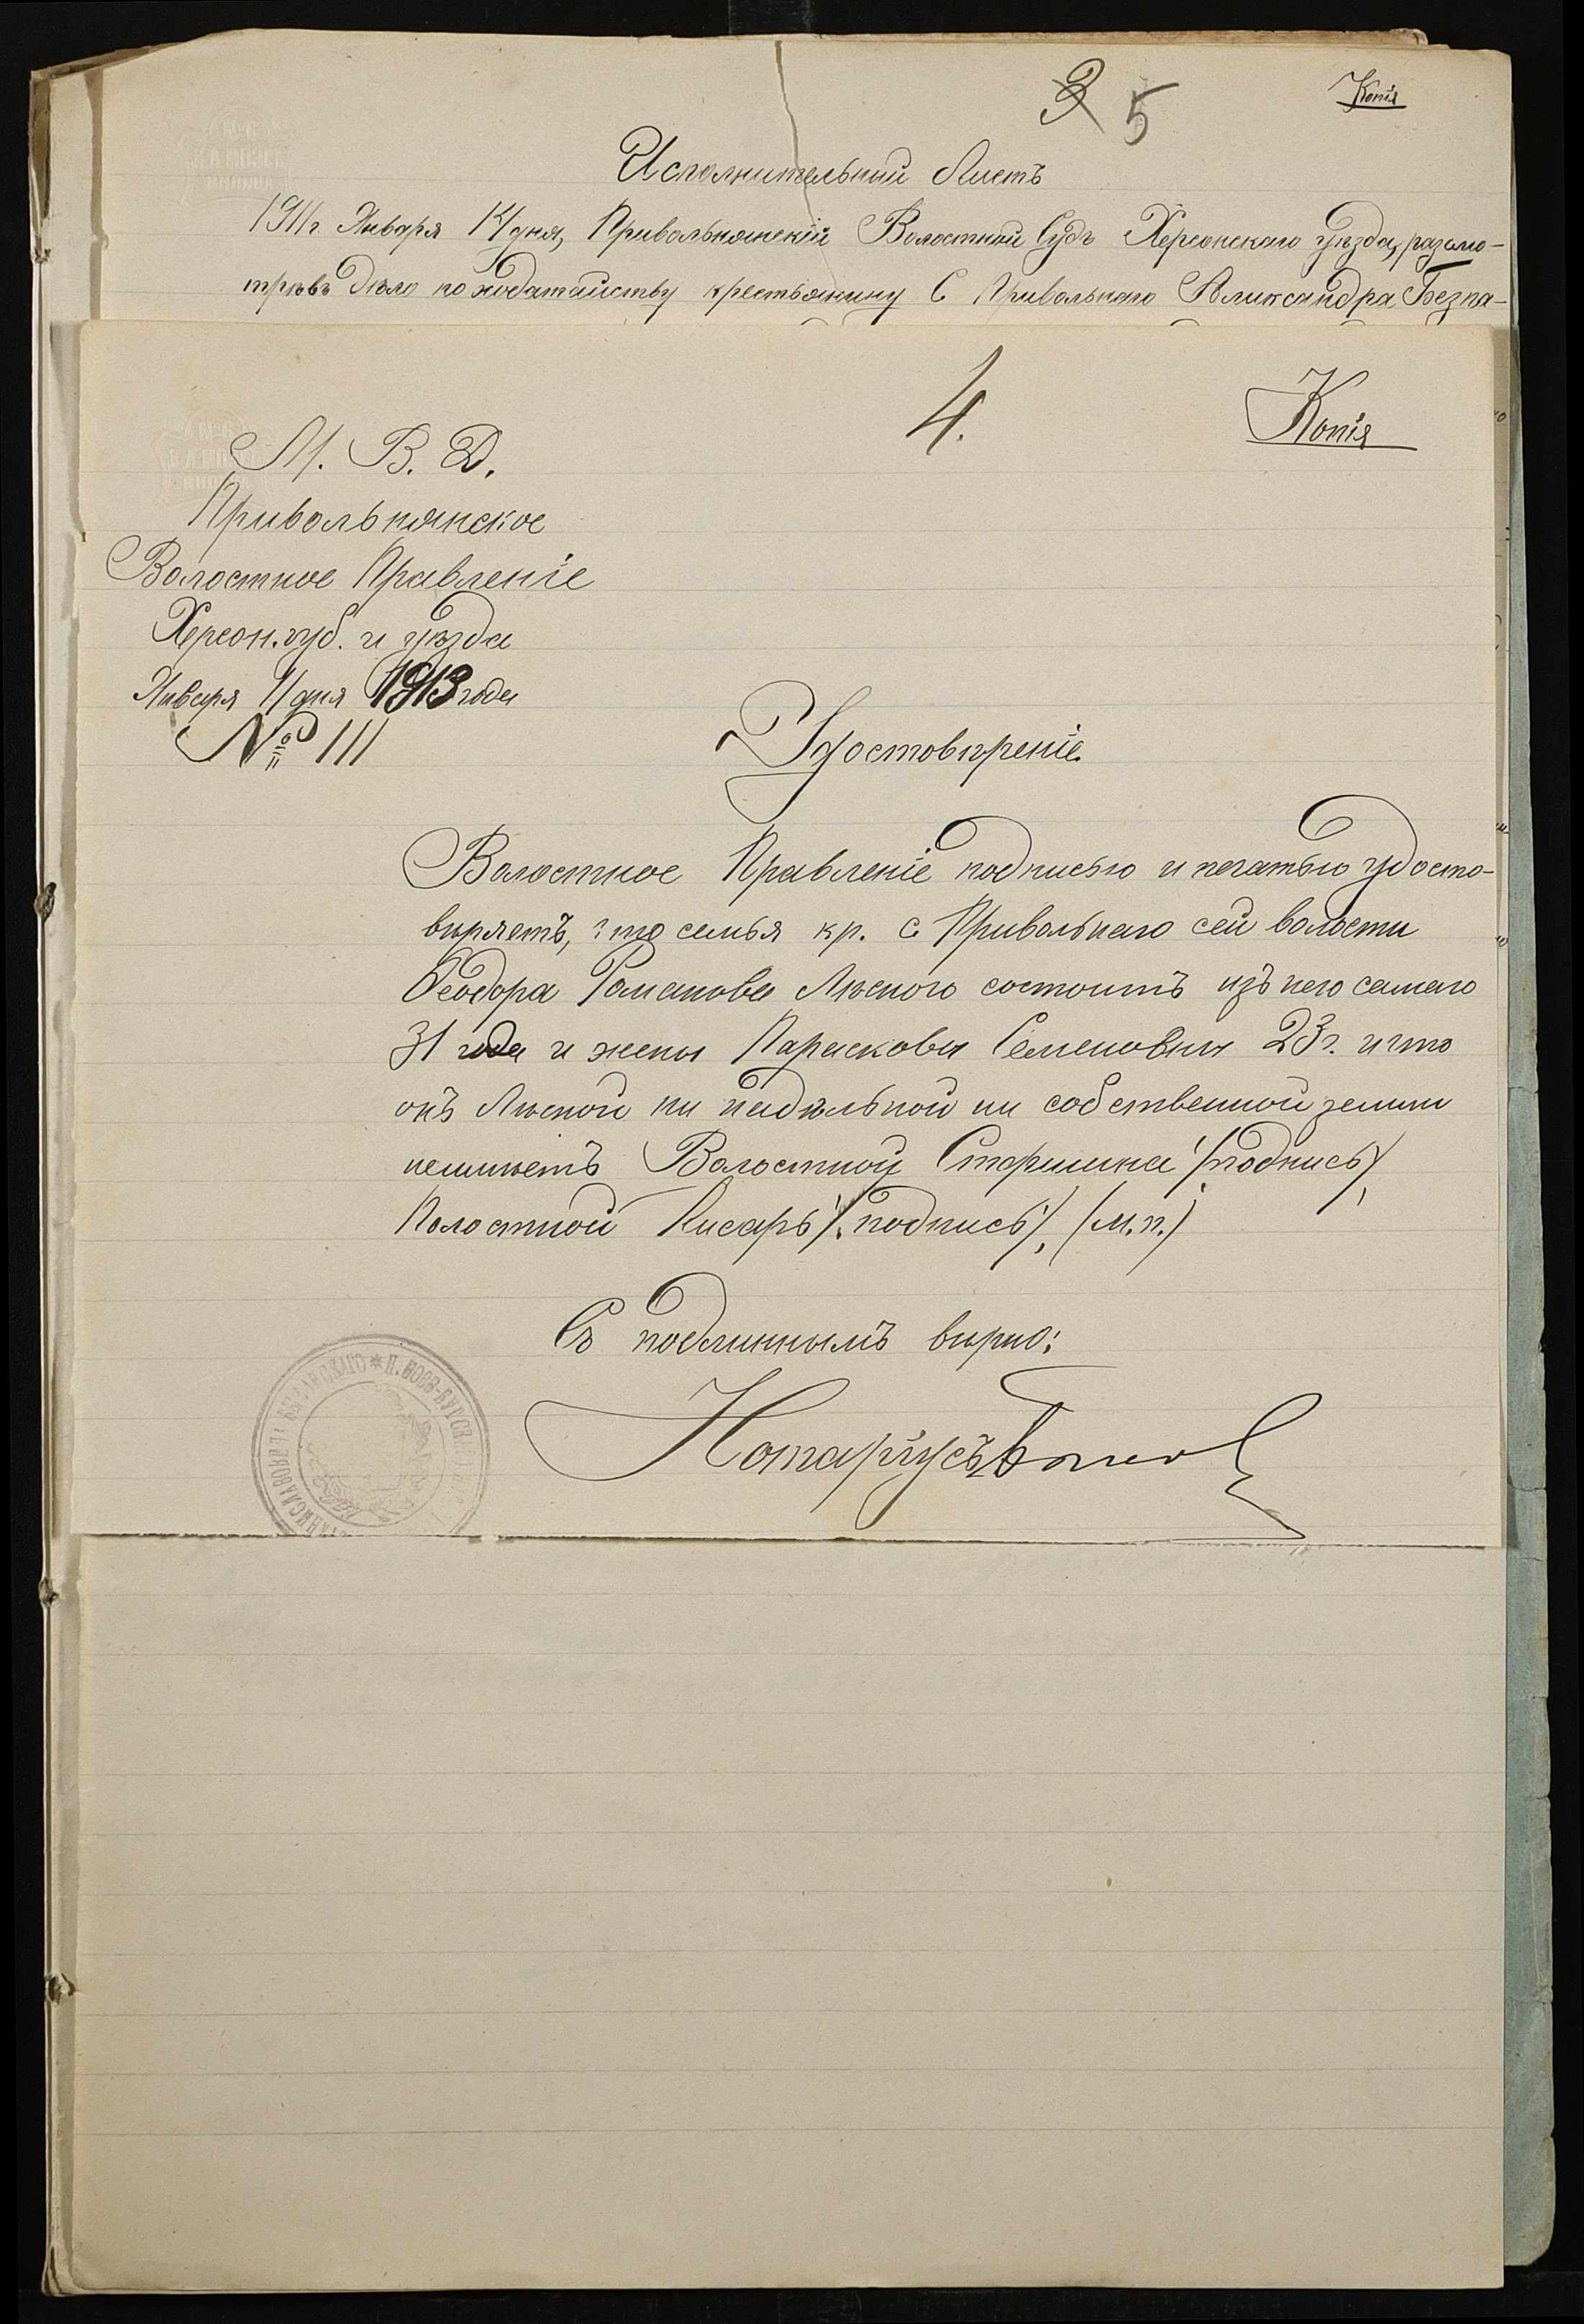 3 5
Копія
Исполнительный Листъ
1911 г Января 14 дня, Привольнянскій Волостной Судъ Херсонскаго уѣзда, разсмо-
трѣвъ дѣло по ходатайству крестьянину С Привольнаго Александра Безпа-
4.
Копія
М. В. Д.
Привольнянское
Волостное Правленіе
Херсон. губ. и уѣзда
Января 11 дня 1913 года
№ 111
Удостовѣреніе
Волостное Правленіе подписью и печатью удосто-
вѣряетъ, что семья кр. с Привольнаго сей волости
Феодора Романова Лѣсного состоитъ изъ него самаго
31 года и жены Парасковьи Семеновны 23 г. и что
онъ Лѣсной ни надѣльной ни собственной земли
неимѣетъ Волостной Старшина /подпись/,
Волостной Писарь /подпись/, (м.п.)
Съ подлиннымъ вѣрно:
Нотаріусъ